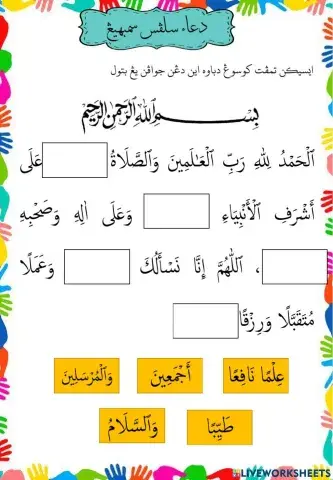 دعاء سلڤس سمبهيڠ
ايسيكن تمڤت كوسوڠ دباوه اين دڠن جواڤن يڠ بتول
بِسْــــمِ اللهِ الرَّحْمٰنِ الرَّحِيْمِ
اَلْحَمْدُ لِلهِ رَبِّ الْعَـٰلَمِينَ وَالصَّلَاةُ عَلَى
أَشْرَفِ الْأَنْبِيَاءِ وَعَلَى اٰلِهِ وَصَحْبِهِ
، اَللّٰهُمَّ إِنَّا نَسْأَلُكَ وَعَمَلًا
مُتَقَبَّلًا وَرِزْقًا
عِلْمًا نَافِعًا أَجْمَعِيْنَ وَالْمُرْسَلِينَ
طَيِّبًا وَالسَّلَامُ
LIVEWORKSHEETS